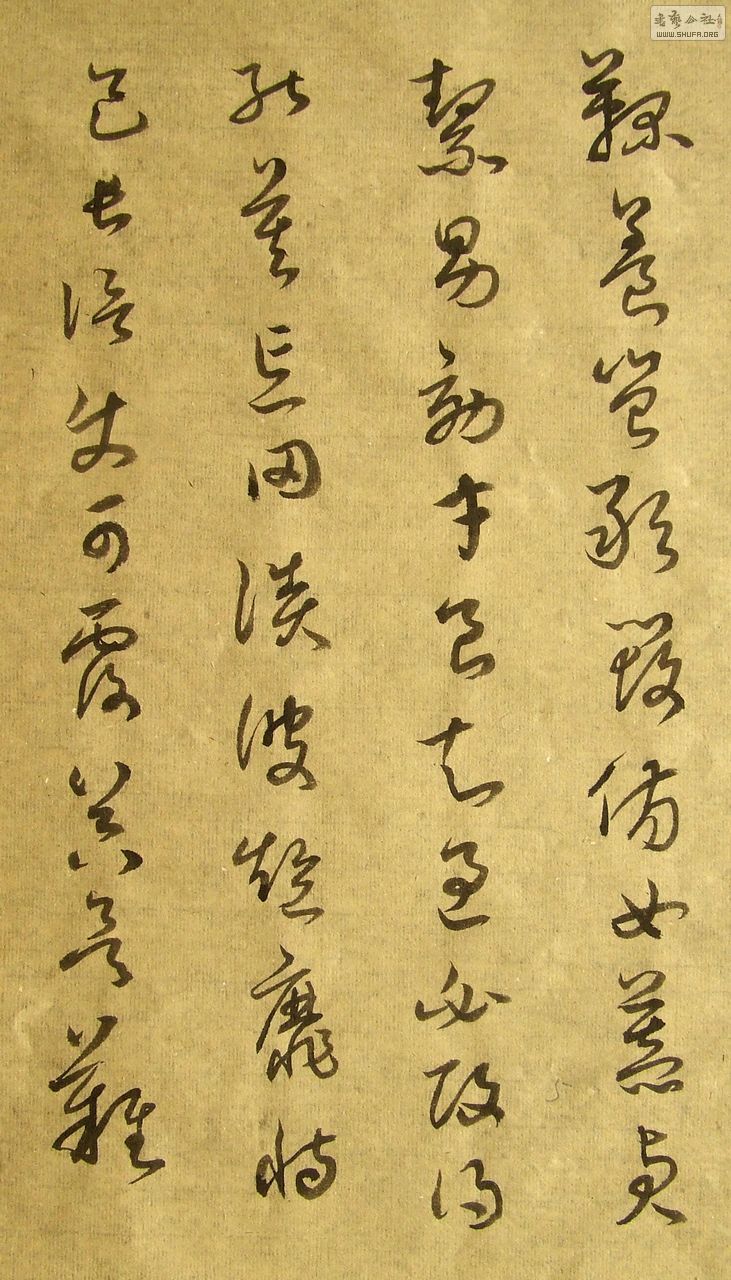 鞠養豈敢毀傷女慕貞
絜男效才良知過必改得
能莫忘罔談彼短靡恃
己長信使可覆器欲難
書藝公社
WWW.SHUFA.ORG